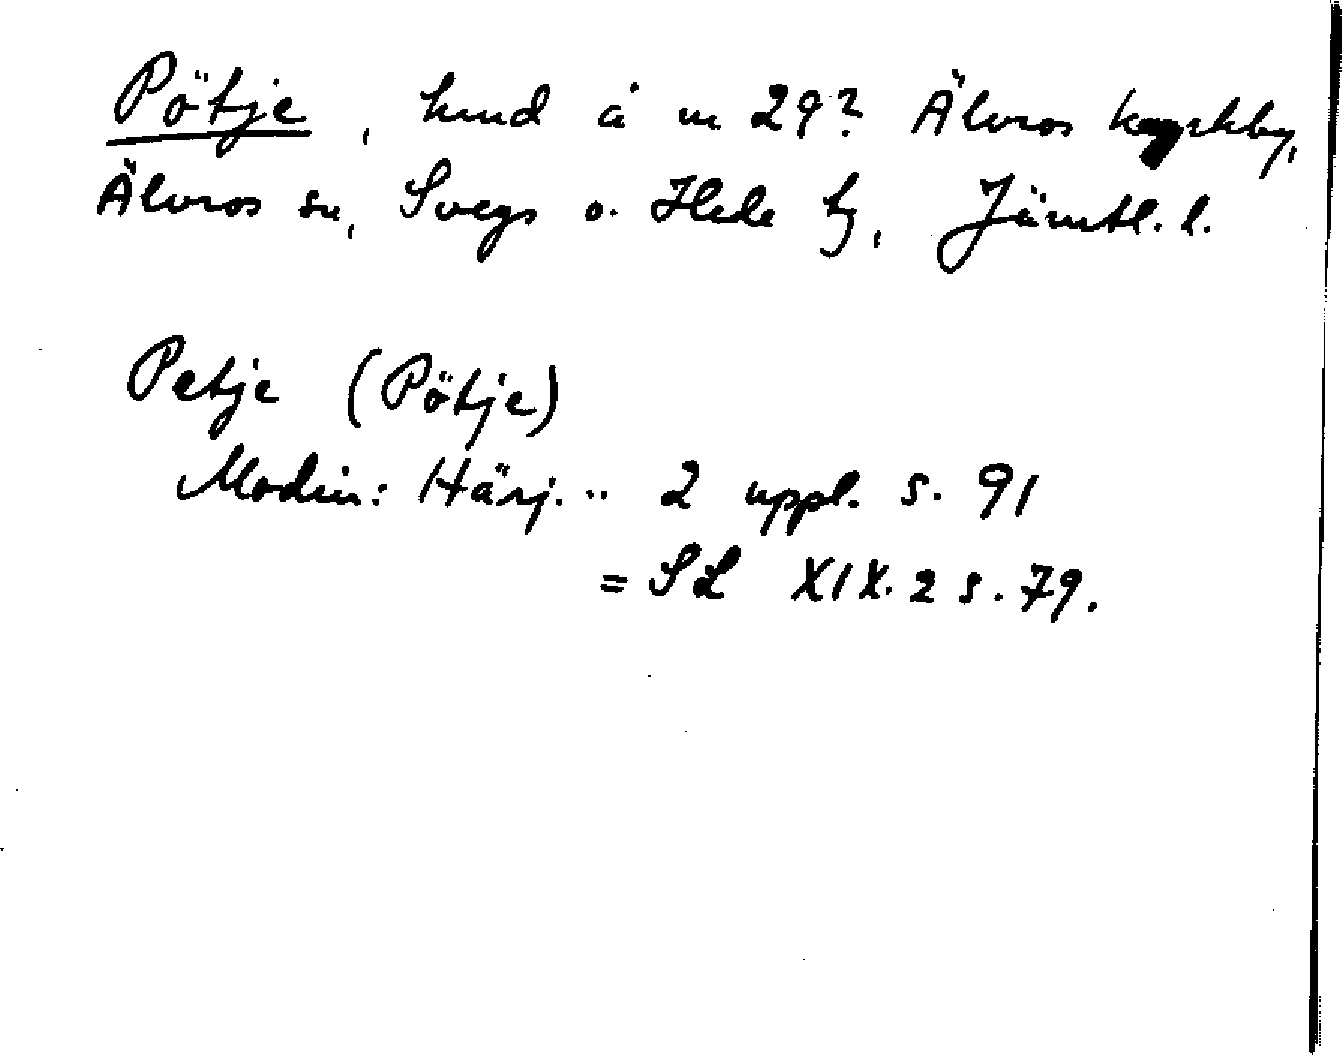 Pötje, hmd å nr 29? Älvros kyrkby,
Älvros sn, Svegs o. Hede tg, Jämtl. l.
Petje (Pötje)
Modin: Härj. .. 2 uppl. s. 91
= SL XIX. 2 s. 79.